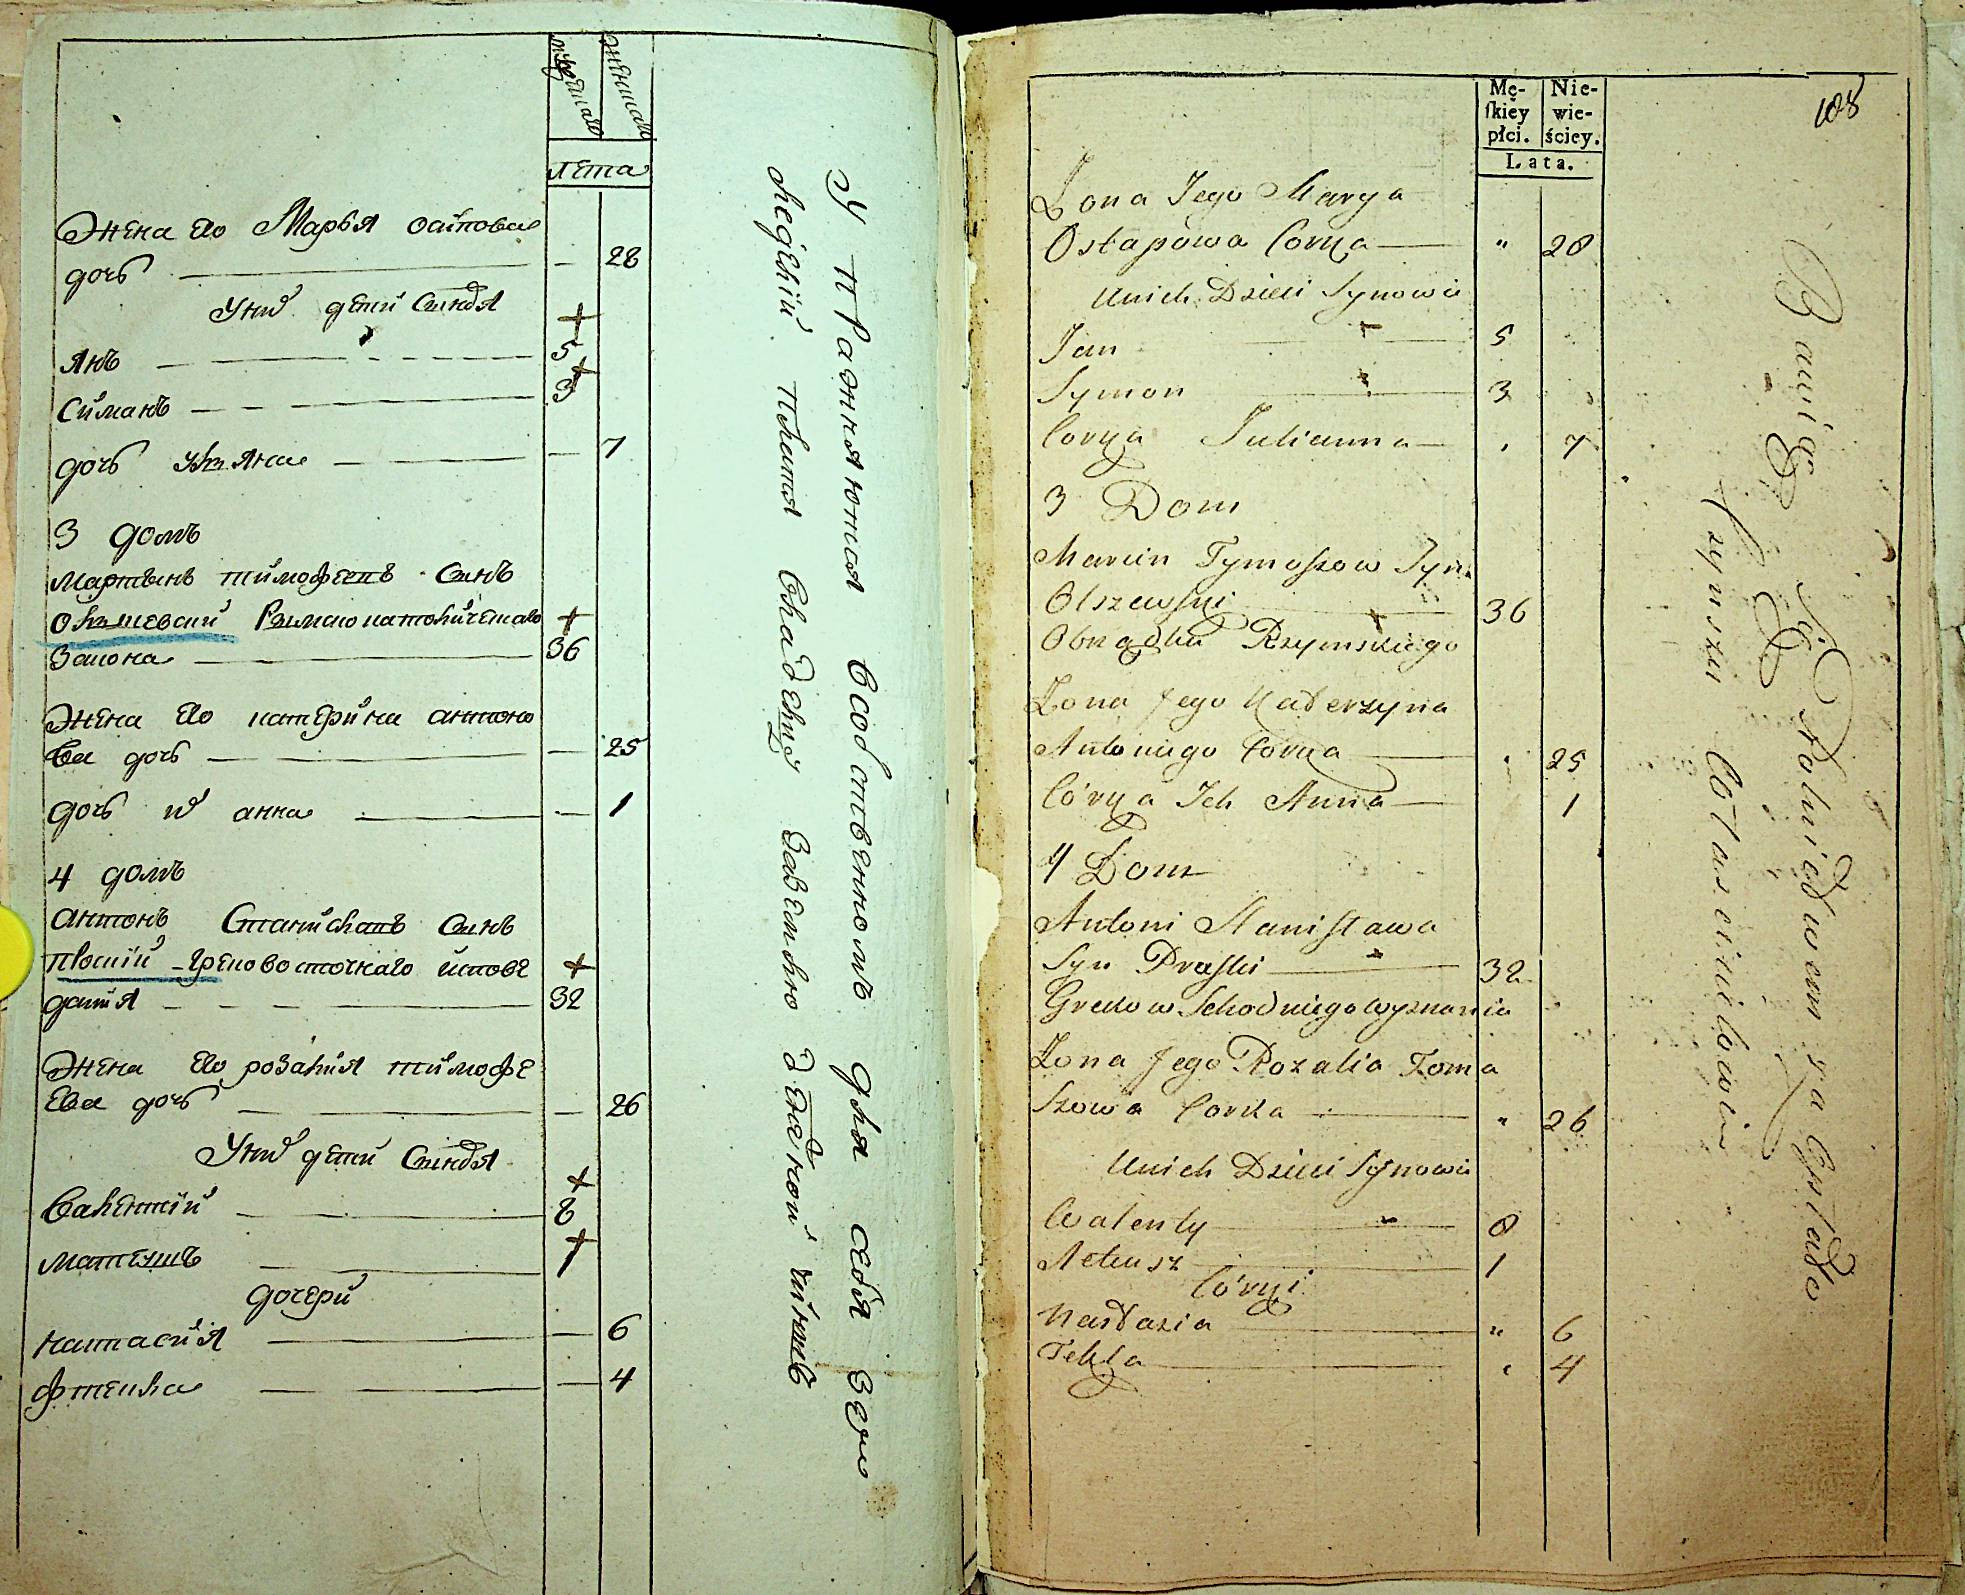 лета
Жена его Марья осипова
дочь 28
У них дети Синовя
Янъ 5
Симанъ 3
дочь Уляна 7
3 домъ
Мартынъ тимофеевъ Синъ
Олшевский Римскокатолическаго
Закона 36
Жена его катерина антоно
ва дочь 25
дочь их анна 1
4 домъ
антонъ Станиславъ Синъ
праский грековосточнаго испове
дания 32
Жена его розалия тимофе
ева дочь 26
У них дети Синовя
Валентий 8
матеушъ 1
дочери
настасия 6
фтекла 4
Упражняются в собственномъ для себя земле
делии платя складелцу
108
Mę-
ſkiéy
płci.
Nie-
wie-
ściey.
Lata.
Żona Jego Marya
Ostapowa Corka " 28
U nich Dzieci Synowie
Jan 5
Symon 3
Corka Julianna 7
3 Dom
Marcin Tymoszow Syn
Olszewski 36
Obrządku Rzymskiego
Żona Jego Katerzyna
Antoniego Corka 25
Córka Ich Anna 1
4 Dom
Antoni Stanisława
Syn Praski 32
Greko w Schodniego wyznania
Żona Jego Rozalia Toma
Szowa Corka " 26
U nich Dzieci Synowie
Walenty 8
Mateusz 1
Córki
Nastazia " 6
Tekla 4
Bawią Się Rolnictwem za Opłatą
Czynszu Właścicielowi